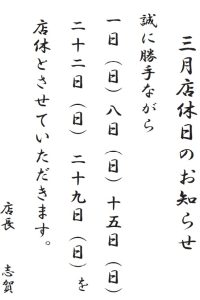 三月店休日のお知らせ
誠に勝手ながら
一日（日）八日（日）十五日（日）
二十二日（日）　二十九日（日）を
店休とさせていただきます。
店長　志賀